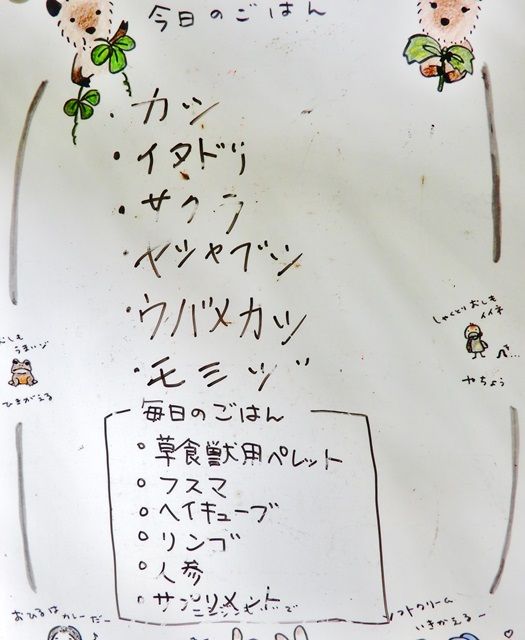 今日のごはん
・カシ
・イタドリ
・サクラ
・ヤシャブシ
・ウバメカシ
・モミジ
しゃくとりおしも
イイネ
うまいゾ
ひきがえる
やちょう
毎日のごはん
○草食獣用ペレット
○フスマ
○ヘイキューブ
○リンゴ
○人参
○サプリメント
おひるはカレーだー♪
ソフトクリーム
いきかえるー